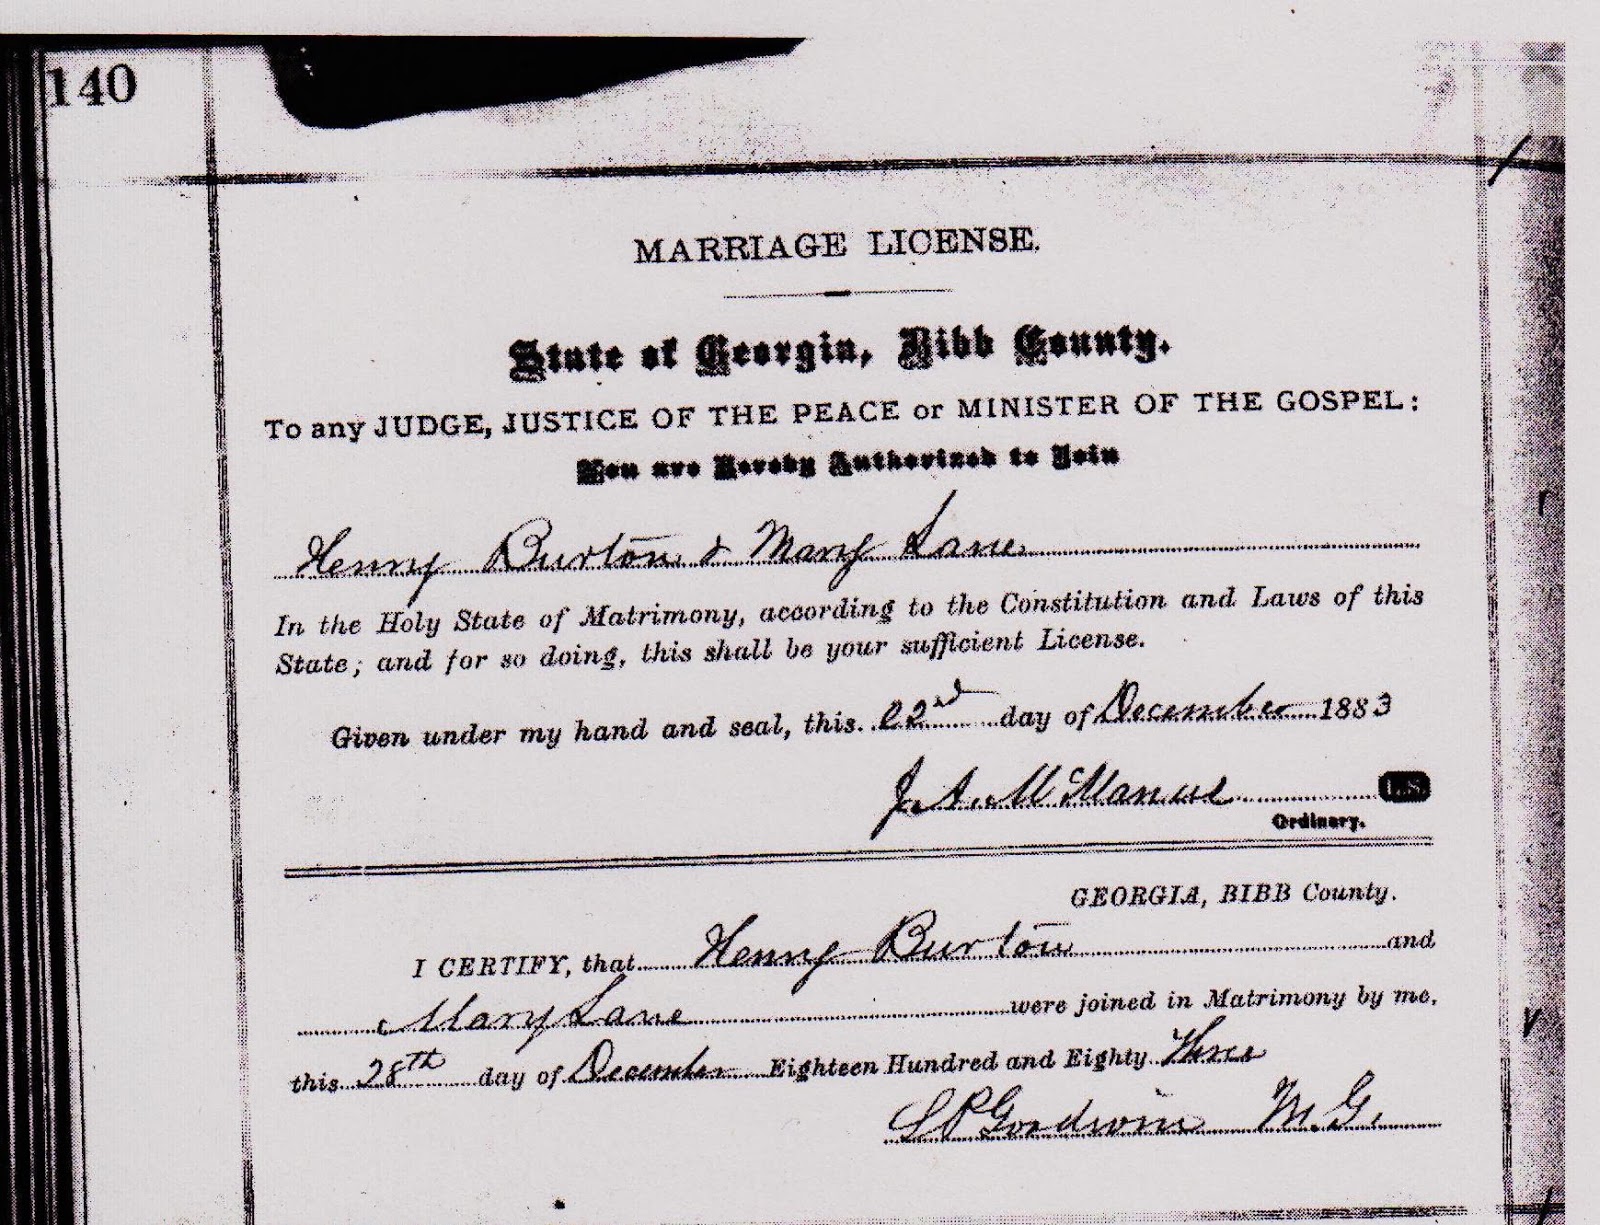 140
MARRIAGE LICENSE.
State of Georgia, Bibb County.
To any JUDGE, JUSTICE OF THE PEACE or MINISTER OF THE GOSPEL:
You are Hereby Authorized to Join
Henry Burton & Mary Lane
In the Holy State of Matrimony, according to the Constitution and Laws of this
State; and for so doing, this shall be your sufficient License.
Given under my hand and seal, this 22nd day of December 1883
J. A. McManus L.S.
Ordinary.
GEORGIA, BIBB County.
I CERTIFY, that Henry Burton and
Mary Lane were joined in Matrimony by me,
this 28th day of December Eighteen Hundred and Eighty Three
S P Goodwin M. G.